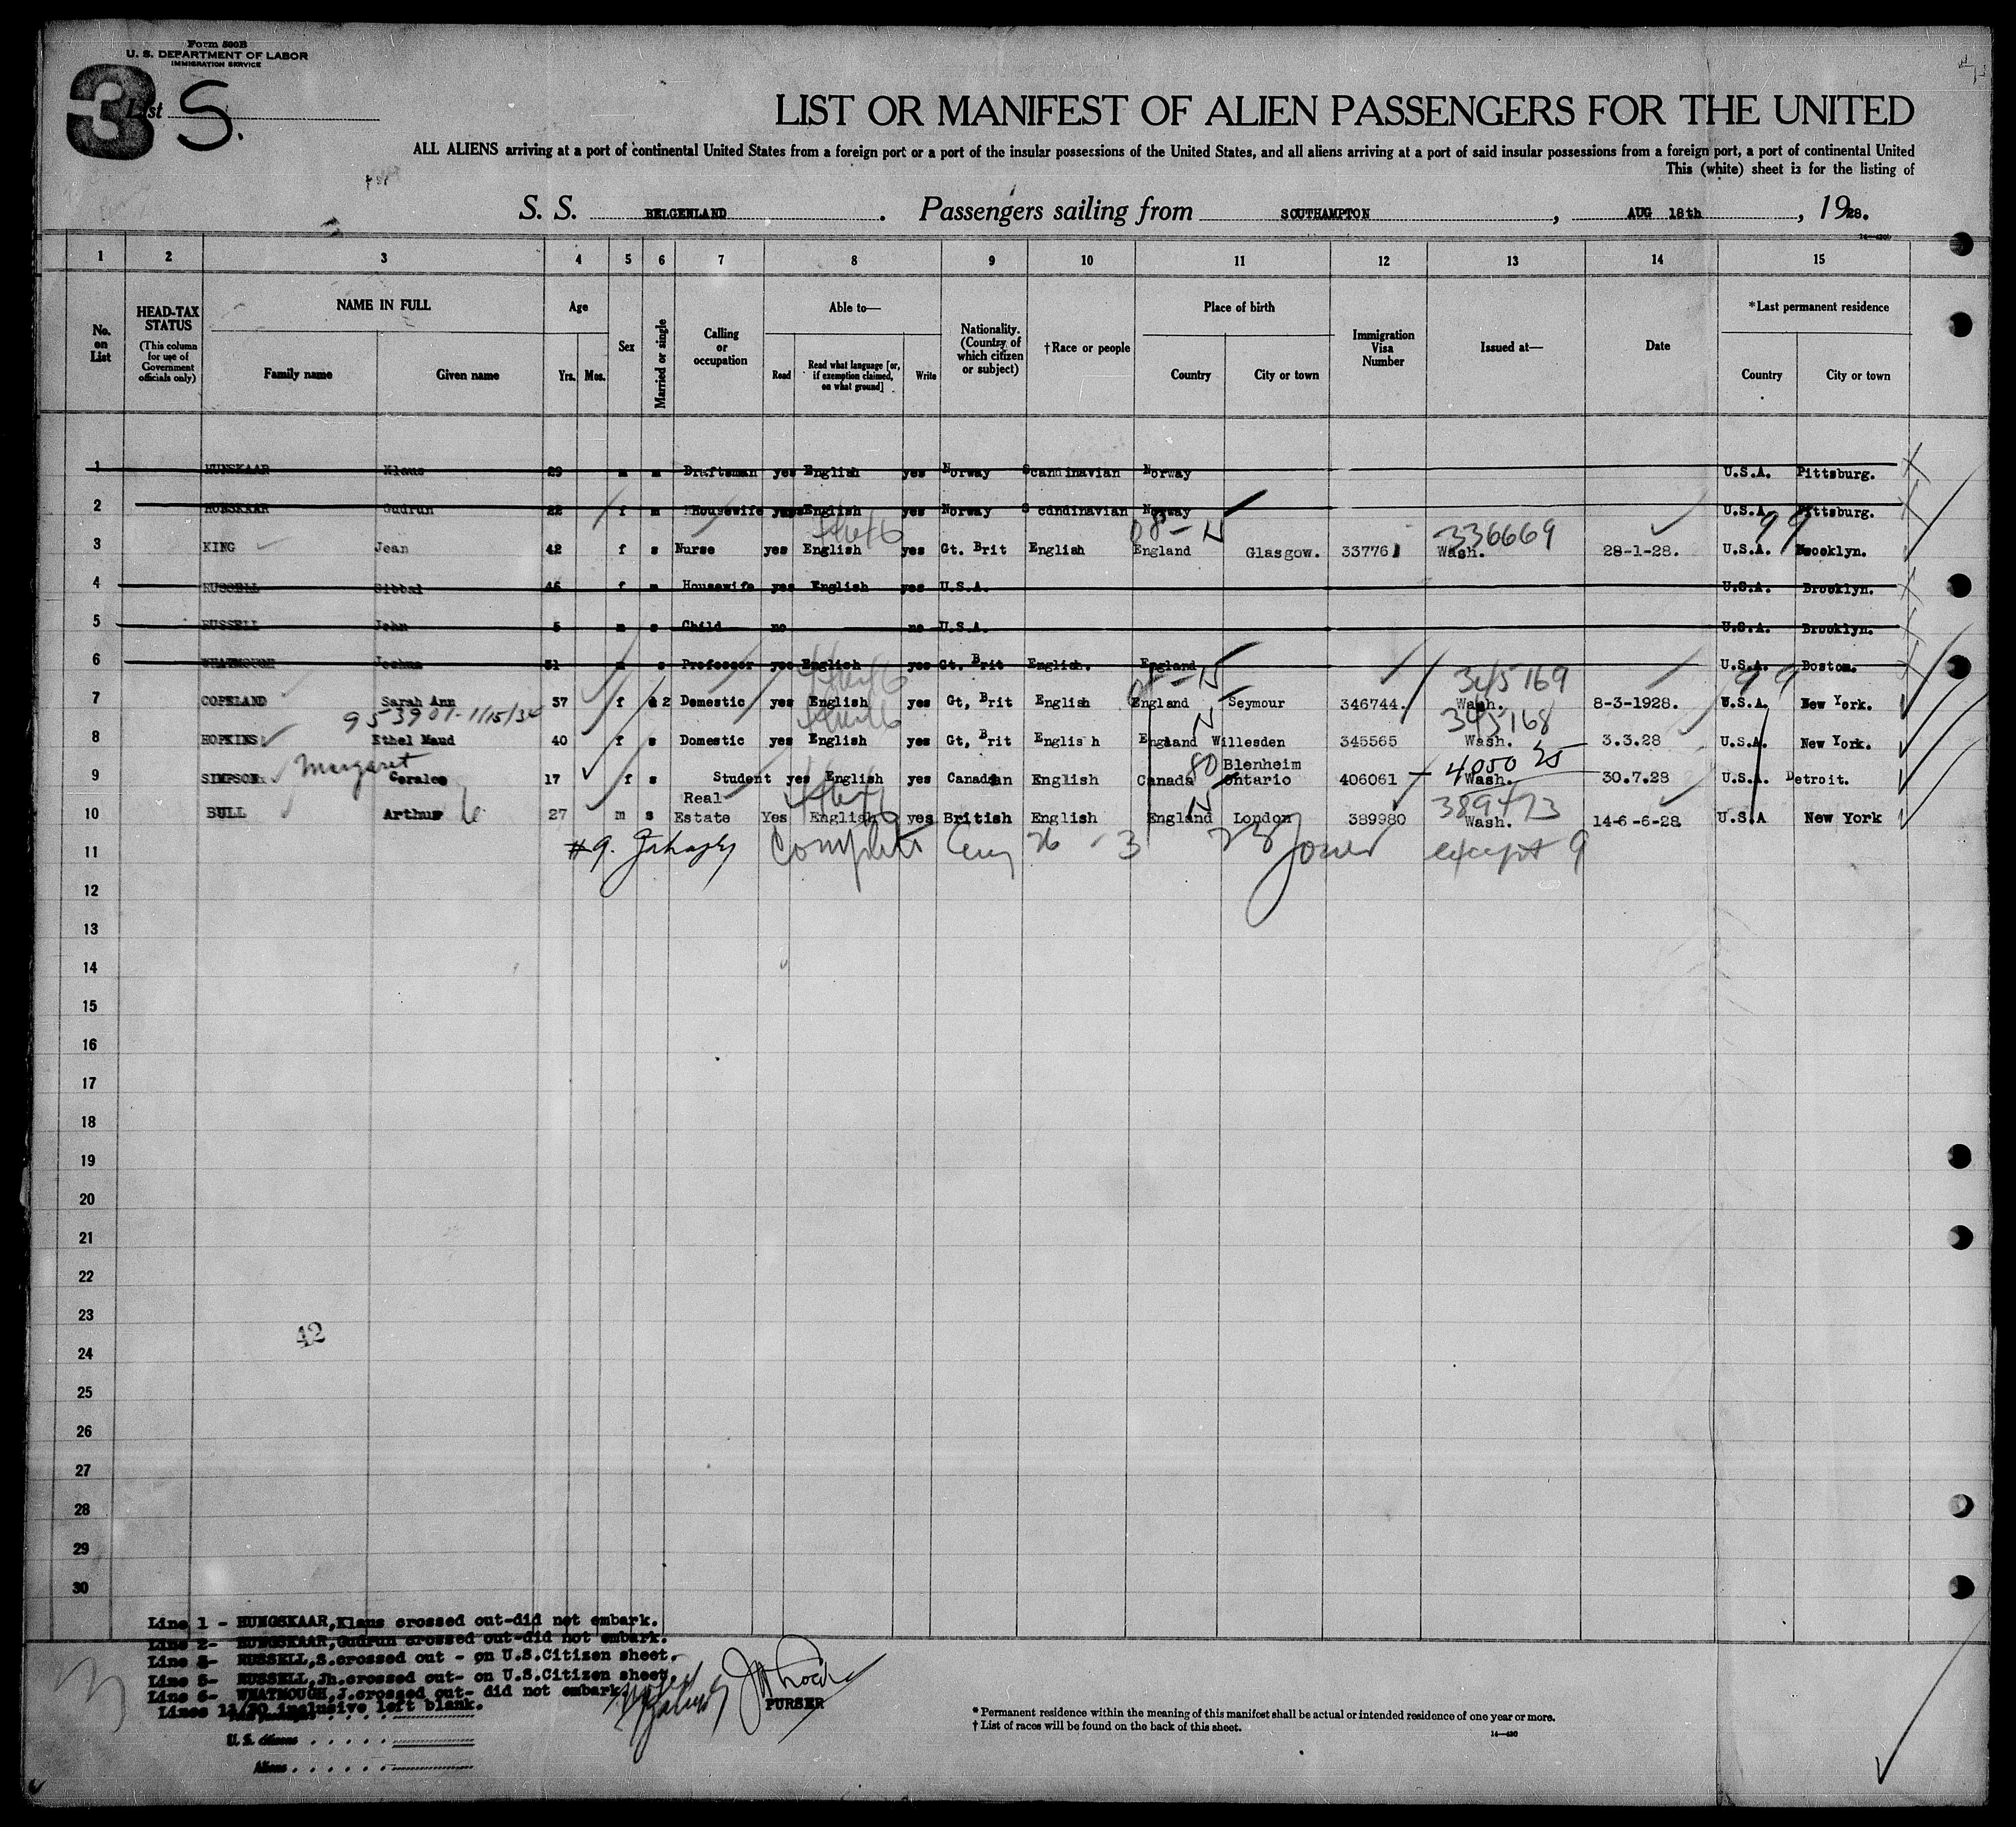 Form 500B
U. S. DEPARTMENT OF LABOR
IMMIGRATION SERVICE
3
List S.
LIST OR MANIFEST OF ALIEN PASSENGERS FOR THE UNITED
ALL ALIENS arriving at a port of continental United States from a foreign port or a port of the insular possessions of the United States, and all aliens arriving at a port of said insular possessions from a foreign port, a port of continental United
This (white) sheet is for the listing of
S. S. BELGENLAND. Passengers sailing from SOUTHAMPTON, AUG 18th, 1928.
1 2 3 4 5 6 7 8 9 10 11 12 13 14 15
No. on List
HEAD-TAX STATUS (This column for use of Government officials only)
NAME IN FULL Family name Given name
Age Yrs. Mos.
Sex
Married or single
Calling or occupation
Able to— Read Read what language [or, if exemption claimed, on what ground] Write
Nationality. (Country of which citizen or subject)
†Race or people
Place of birth Country City or town
Immigration Visa Number
Issued at—
Date
*Last permanent residence Country City or town
1 HUNSKAAR Klaus 29 m m Draftsman yes English yes Norway Scandinavian Norway U.S.A. Pittsburg.
2 HUNSKAAR Gudrun 22 f m Housewife yes English yes Norway Scandinavian Norway U.S.A. Pittsburg.
08 - N 336669 99
3 KING Jean 42 f s Nurse yes English yes Gt. Brit English England Glasgow. 33776 Wash. 28-1-28. U.S.A. Brooklyn.
4 RUSSELL Sibbal 46 f m Housewife yes English yes U.S.A. U.S.A. Brooklyn.
5 RUSSELL John 5 m s Child no no U.S.A. U.S.A. Brooklyn.
6 WHATMOUGH Joshua 31 m s Professor yes English yes Gt. Brit English. England U.S.A. Boston.
08 - N 345169 99
7 COPELAND Sarah Ann 37 f s 2 Domestic yes English yes Gt, Brit English England Seymour 346744. Wash. 8-3-1928. U.S.A. New York.
953901-1/15/34 N 345168
8 HOPKINS Ethel Maud 40 f s Domestic yes English yes Gt, Brit English England Willesden 345565 Wash. 3.3.28 U.S.A. New York.
Margaret 80 Blenheim 405025
9 SIMPSON Coralee 17 f s Student yes English yes Canadian English Canada Ontario 406061 Wash. 30.7.28 U.S.A. Detroit.
Real N 389473
10 BULL Arthur 27 m s Estate Yes English yes British English England London 389980 Wash. 14-6-6-28 U.S.A New York
11 #9. Complete Aug 26 - 3 Jones except 9
12
13
14
15
16
17
18
19
20
21
22
23
42
24
25
26
27
28
29
30
Line 1 - HUNGSKAAR,Klaus crossed out-did not embark.
Line 2- HUNGSKAAR,Gudrun crossed out-did not embark.
Line RUSSELL,S.crossed out - on U.S.Citizen sheet.
Line 5- RUSSELL,Jh.crossed out- on U.S.Citizen sheet.
Line 6- WHATMOUGH,J.crossed out- did not embark.
Lines 11/30 inclusive left blank.
U. S. citizens
Aliens
PURSER
* Permanent residence within the meaning of this manifest shall be actual or intended residence of one year or more.
† List of races will be found on the back of this sheet.
14—430